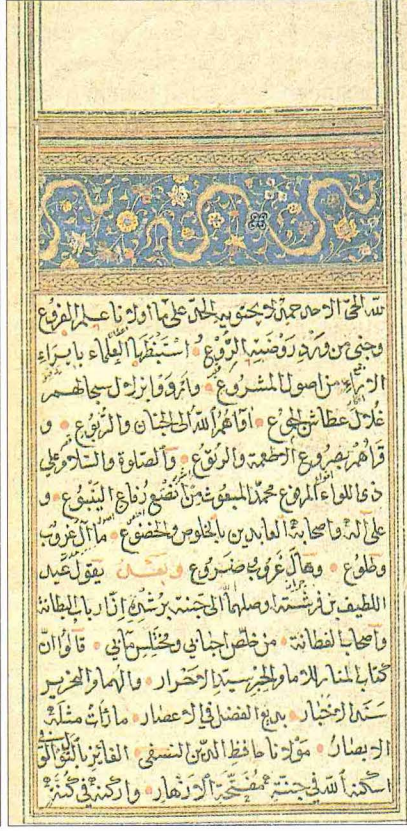 لله المحق الاحد حمد لا يحتويه الحد على ما اولانا علم الفروع
وجنى من ورد روضته الروع استنبطها العلماء بابراء
الاراء من اصول المشروع وارووا بزلال سجالهم
غلال عطاش الجوع اواهم الله الى الجنان والربوع و
قراهم بضروع الاطعمة والربوع والصلوة والسلام على
ذى اللواء المرفوع محمد المبعوث من
على آله واصحابه العابدين بالخلوص والخضوع ما آل غروب
وطلوع وهال غروب ضروع وبعد يقول عبد
اللطيف بن فرشته اوصلهما الى جنته برشده ان ارباب البطانة
واصحاب الفطانة من خلص اجنابى ومخلص قالوا ان
كتاب المنار للامام والحبر سيد الاحرار والهمام والتحرير
سند الاخيار بديع الفضل فى الاعصار ما رأت مثله
الابصار مولانا حافظ الدين النسفى الفائز بالتقى
اسكنه الله فى جنته مفتحة الازهار واركنه فى كنفه